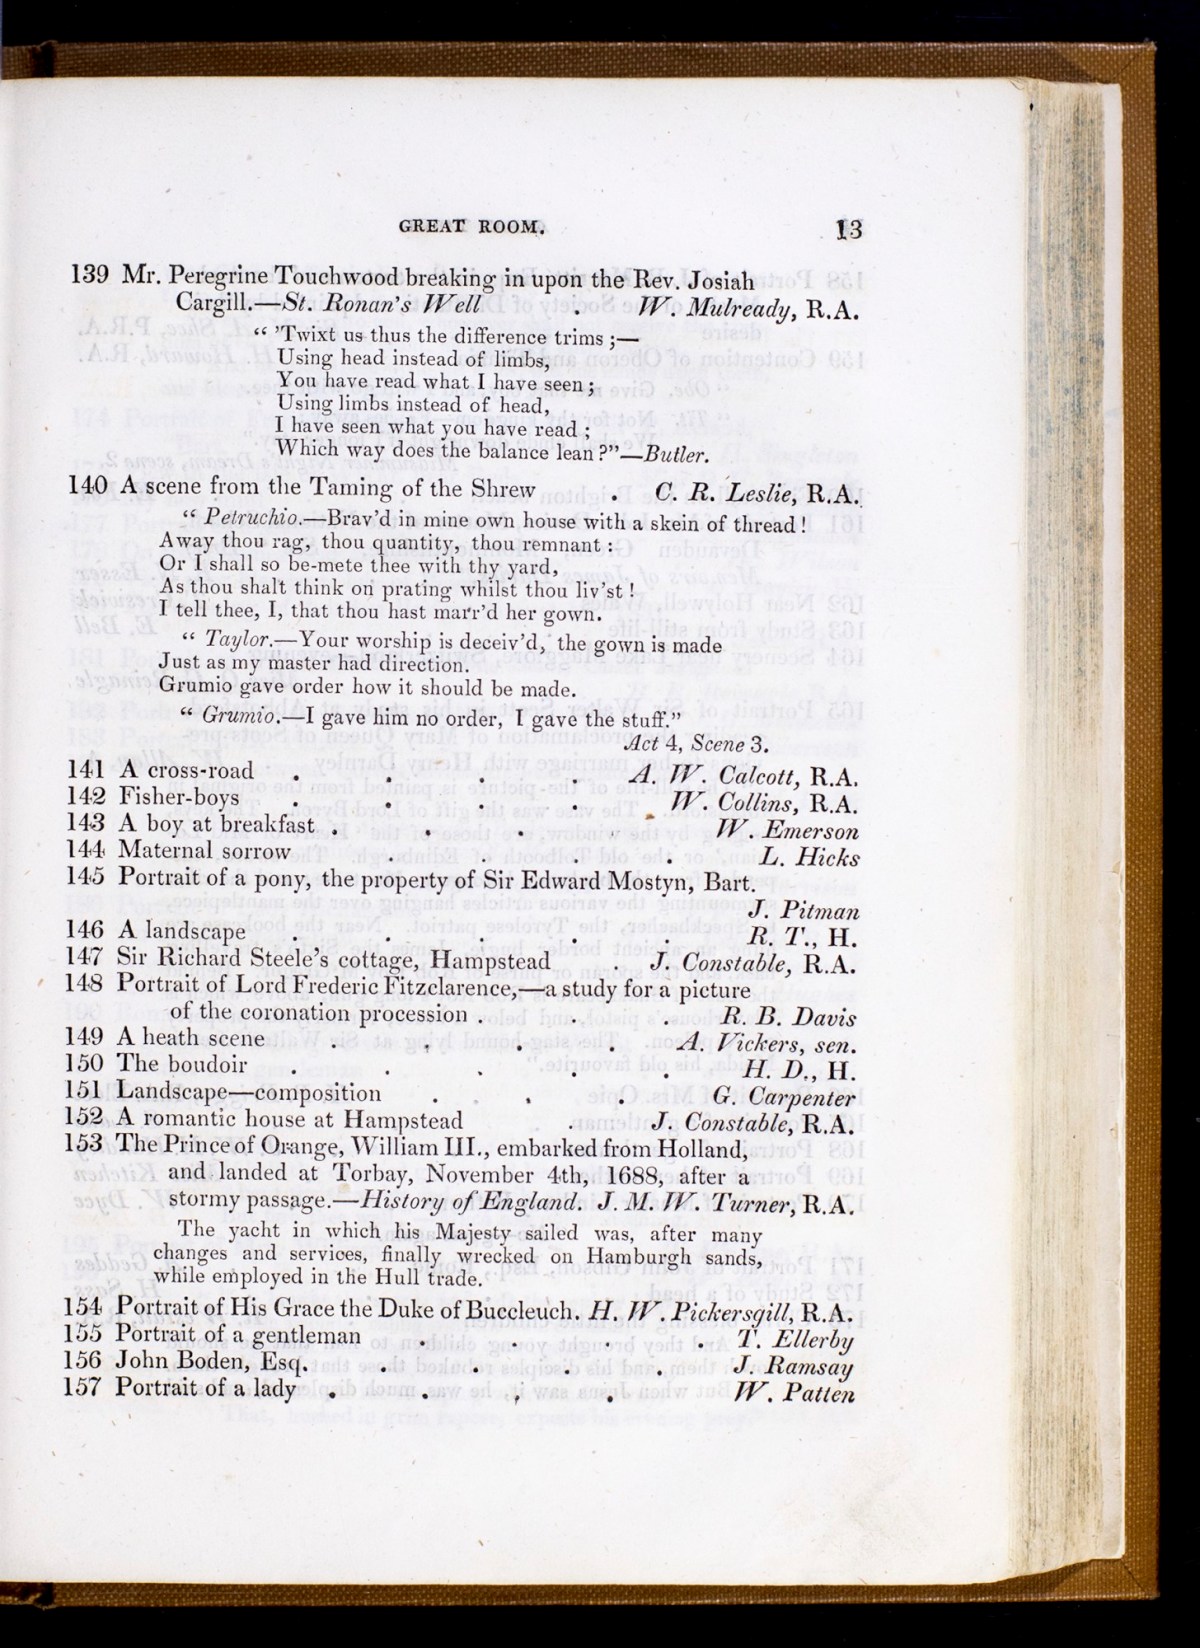 GREAT ROOM. 13
139 Mr. Peregrine Touchwood breaking in upon the Rev. Josiah
Cargill.—St. Ronan's Well . W. Mulready, R.A.
“ 'Twixt us thus the difference trims ;—
Using head instead of limbs,
You have read what I have seen ;
Using limbs instead of head,
I have seen what you have read ;
Which way does the balance lean ?”—Butler.
140 A scene from the Taming of the Shrew . C. R. Leslie, R.A.
“ Petruchio.—Brav'd in mine own house with a skein of thread !
Away thou rag, thou quantity, thou remnant :
Or I shall so be-mete thee with thy yard,
As thou shalt think on prating whilst thou liv'st !
I tell thee, I, that thou hast marr'd her gown.
“ Taylor.—Your worship is deceiv'd, the gown is made
Just as my master had direction.
Grumio gave order how it should be made.
“ Grumio.—I gave him no order, I gave the stuff.”
Act 4, Scene 3.
141 A cross-road . . . . A. W. Calcott, R.A.
142 Fisher-boys . . . . W. Collins, R.A.
143 A boy at breakfast . . . . W. Emerson
144 Maternal sorrow . . . . L. Hicks
145 Portrait of a pony, the property of Sir Edward Mostyn, Bart.
J. Pitman
146 A landscape . . . . . R. T., H.
147 Sir Richard Steele's cottage, Hampstead J. Constable, R.A.
148 Portrait of Lord Frederic Fitzclarence,—a study for a picture
of the coronation procession . . . R. B. Davis
149 A heath scene . . . . A. Vickers, sen.
150 The boudoir . . . . . H. D., H.
151 Landscape—composition . . . G. Carpenter
152 A romantic house at Hampstead . J. Constable, R.A.
153 The Prince of Orange, William III., embarked from Holland,
and landed at Torbay, November 4th, 1688, after a
stormy passage.—History of England. J. M. W. Turner, R.A.
The yacht in which his Majesty sailed was, after many
changes and services, finally wrecked on Hamburgh sands,
while employed in the Hull trade.
154 Portrait of His Grace the Duke of Buccleuch. H. W. Pickersgill, R.A.
155 Portrait of a gentleman . . . . T. Ellerby
156 John Boden, Esq. . . . . J. Ramsay
157 Portrait of a lady . . . . W. Patten